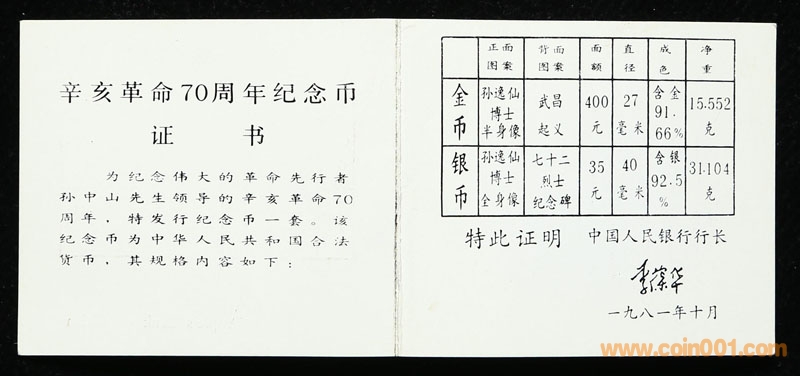 辛亥革命70周年纪念币
证 书
为纪念伟大的革命先行者
孙中山先生领导的辛亥革命70
周年，特发行纪念币一套。该
纪念币为中华人民共和国合法
货币，其规格内容如下：
正面图案 背面图案 面额 直径 成色 净重
金币 孙逸仙博士半身像 武昌起义 400元 27毫米 含金91.66% 15.552克
银币 孙逸仙博士全身像 七十二烈士纪念碑 35元 40毫米 含银92.5% 31.104克
特此证明 中国人民银行行长
李葆华
一九八一年十月
www.coin001.com